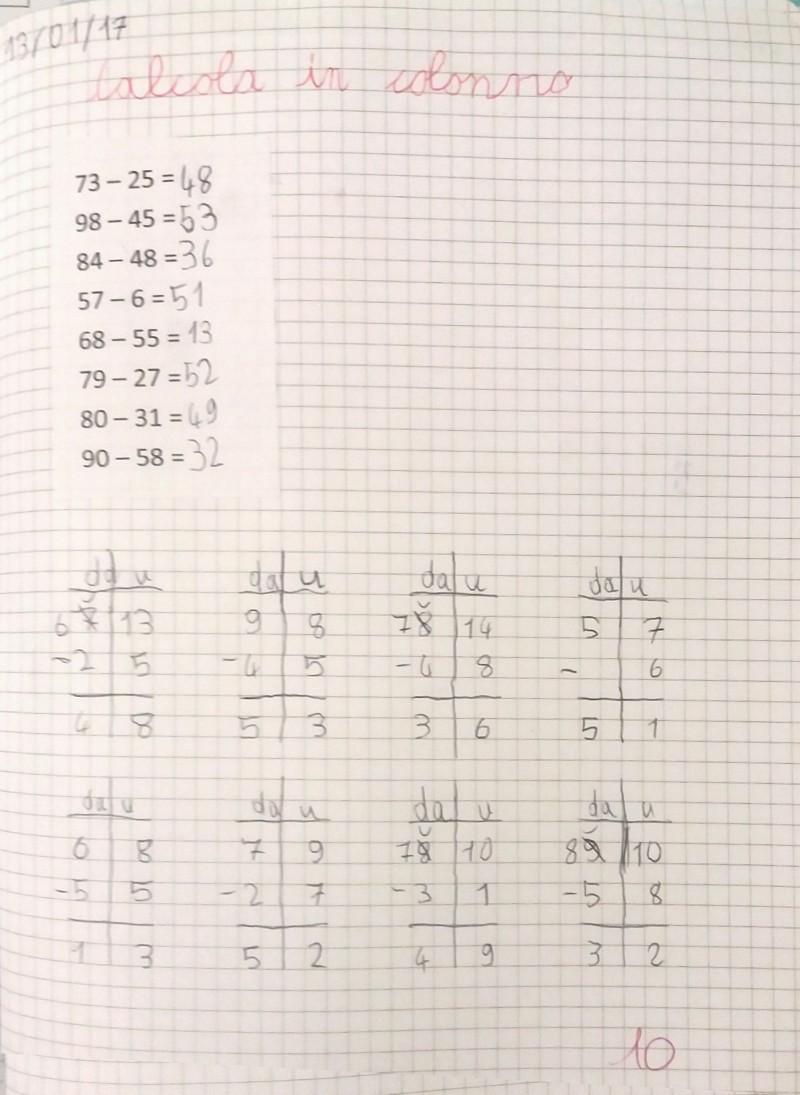 13/01/17
Calcola in colonna
73 – 25 = 48
98 – 45 = 53
84 – 48 = 36
57 – 6 = 51
68 – 55 = 13
79 – 27 = 52
80 – 31 = 49
90 – 58 = 32
da u da u da u da u
6 7 13 9 8 7 8 14 5 7
-2 5 -4 5 -4 8 - 6
4 8 5 3 3 6 5 1
da u da u da u da u
6 8 7 9 7 8 10 8 9 10
-5 5 -2 7 -3 1 -5 8
1 3 5 2 4 9 3 2
10